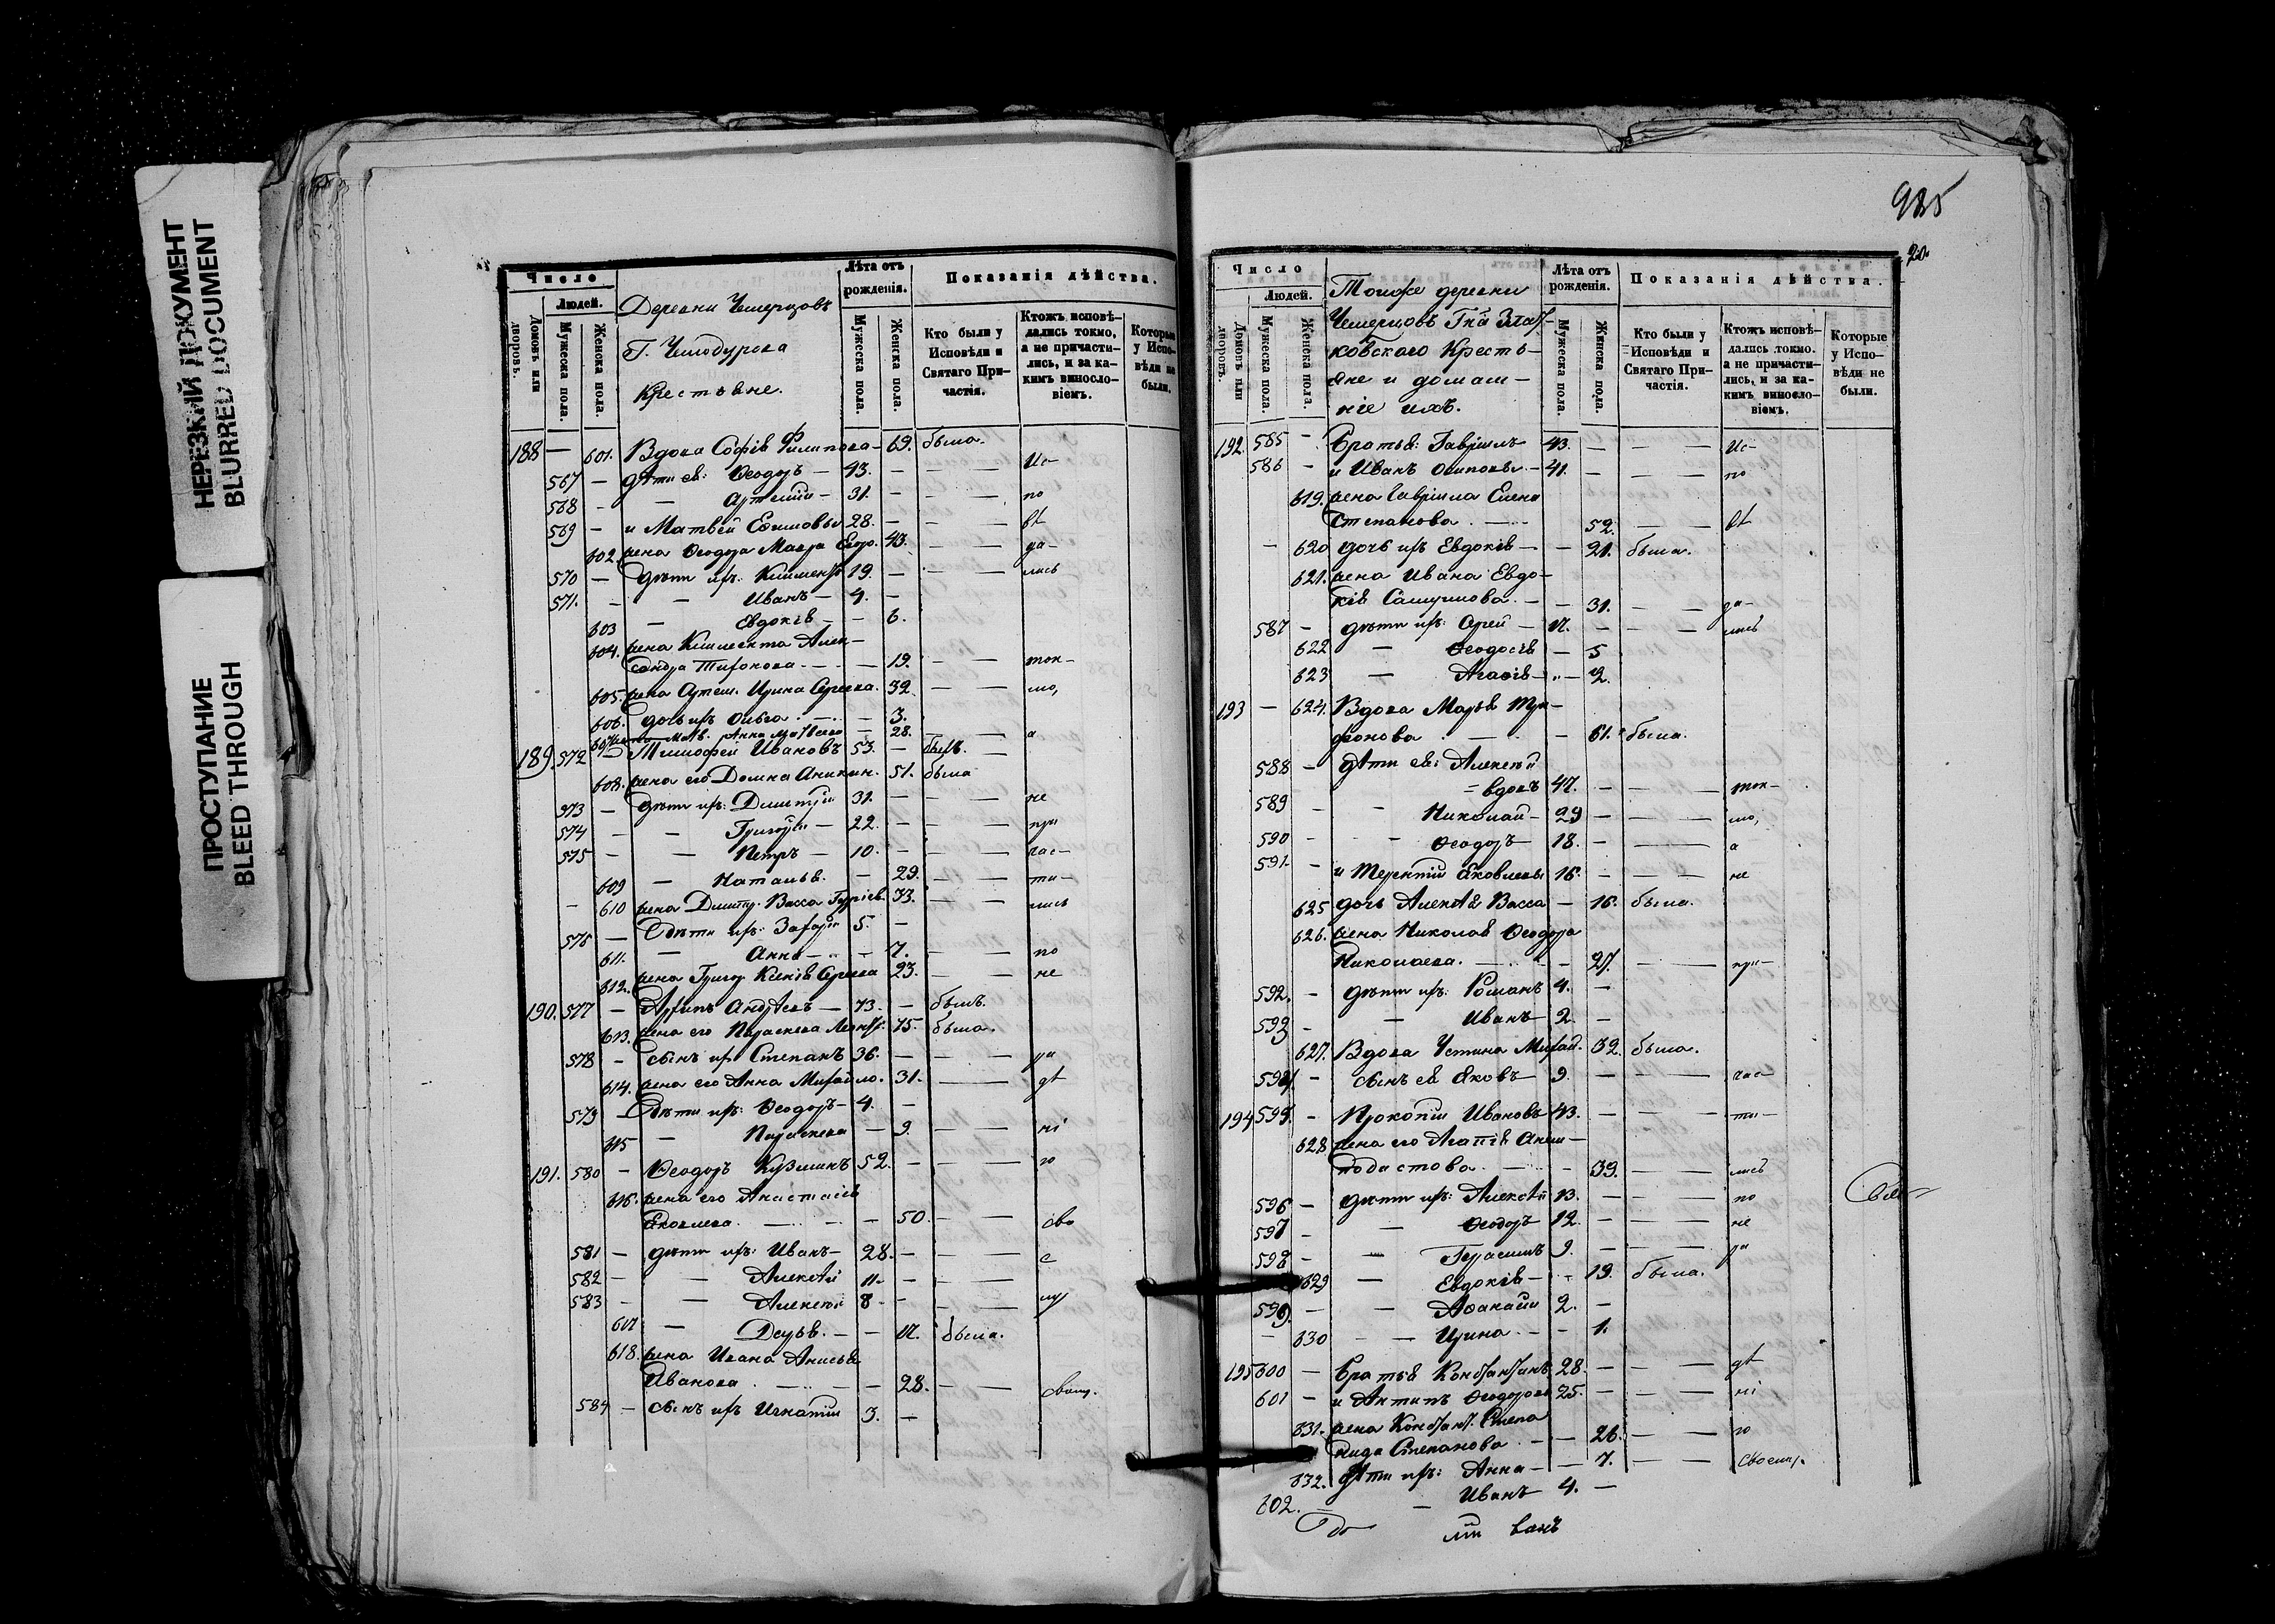 НЕРЕЗКИЙ ДОКУМЕНТ
BLURRED DOCUMENT
ПРОСТУПАНИЕ
BLEED THROUGH
Число
Людей.
Домовъ или дворовъ.
Мужеска пола.
Женска пола.
Деревни Чемерцовъ
Г. Чемодурова
Крестьяне.
Лѣта отъ рожденія.
Мужеска пола.
Женска пола.
Показанія дѣйства.
Кто были у Исповѣди и Святаго Причастія.
Ктожъ исповѣдались токмо, а не причастились, и за какимъ винословіемъ.
Которые у Исповѣди не были.
188 — 601. Вдова Софія Филипова — 69. была.
567 — дѣти ея: Ѳеодоръ — 43. — Ис-
568 — Артемій — 31. — по
569 — и Матвей Ефимовы 28. — вѣ
602. жена Ѳеодора Мавра Егор. 43. — да-
570 — дѣти ихъ: Климентъ 19. — лись
571. — Иванъ — 4. —
603 — Евдокія — 6.
604. жена Климента Алек-
сандра Тихонова — 19. — ток-
605. жена Артем. Ирина Сергеева. 32. — мо,
606. дочь ихъ Ольга — 3.
607 жена Матв. Анна Матвеева — 28. — а
189. 572 — Тимофей Ивановъ 53. — былъ.
608. жена его Домна Аникин. 51. была
573 — дѣти ихъ: Димитрій 31. — не
574 — Григорій — 22. — при
575 — Петръ — 10. — час-
609 — Наталья. — 29. — ти-
610 жена Димитр. Васса Гурьев. 33. — лись
576 — дѣти ихъ: Захарій 5. —
611. — Анна — 7. — по
612. жена Григор. Ксенія Сергеева 23. — не
190. 577 — Архипъ Андреевъ — 73. — былъ.
613. жена его Параскева Леонт. 75. была.
578 — сынъ ихъ Степанъ 36. — ра
614. жена его Анна Михайло. 31. — дѣ
579 — дѣти ихъ: Ѳеодоръ — 4. —
615 — Параскева — 9. — ні
191. 580 — Ѳеодоръ Кузминъ 52. — ю
616. жена его Анастасія
Яковлева. — 50. — сво
581 — дѣти ихъ: Иванъ — 28. — е
582 — Алексѣй 11. —
583 — Алексей 8 — му
617 — Дарья. — 17. была.
618. жена Ивана Анисья
Иванова — 28. — свящ.
584 — сынъ ихъ Игнатій 3. —
985
20.
Число
Людей.
Домовъ или дворовъ.
Мужеска пола.
Женска пола.
Тойже деревни
Чемерцовъ Гна
ковскаго Кресть-
яне и домаш-
ніе ихъ.
Лѣта отъ рожденія.
Мужеска пола.
Женска пола.
Показанія дѣйства.
Кто были у Исповѣди и Святаго Причастія.
Ктожъ исповѣдались токмо, а не причастились, и за какимъ винословіемъ.
Которые у Исповѣди не были.
192. 585 — Братья: Гавріилъ 43. — Ис-
586 — и Иванъ Осиповы — 41. — по
619. жена Гавріила Елена
Степанова. — 52. — вѣ
620 дочь ихъ Евдокія — 21. была.
621. жена Ивана Евдо-
кія Самуилова. — 31. — да-
587 — дѣти ихъ: — 17. — лись
622 — Ѳеодосія — 5
623 — Агафія — 2.
193 — 624. Вдова Марья Три-
фонова — 61. была.
588 — дѣти ея: Алексѣй
вдовъ 47. — ток-
589 — Николай — 29 — мо,
590 — Ѳеодоръ 18. — а
591. — и Терентій Яковлевы 16. — не
625 дочь Алексѣя Васса — 16. была.
626. жена Николая Ѳеодора
Николаева. — 27. — при-
592. — дѣти ихъ: Романъ 4. —
593 — Иванъ — 2. —
627. Вдова Устина Михай. 32. была.
594 — сынъ ея Яковъ — 9. — час-
194 595. — Прокопій Ивановъ 43. — ти-
628 жена его Агапія Анем-
подистова. — 39. — лись
596 — дѣти ихъ: Алексѣй 13. — по
597 — Ѳеодоръ 12. — не
598 — Герасимъ 9. — ра
629 — Евдокія — 19. была.
599. — Афанасій 2. —
630 — Ирина — 1.
195 600 — Братья Константинъ 28. — дѣ
601 — и Антипъ Ѳеодоровы 25. — ні
631. жена Констант. Степа
нида Степанова — 26. — ю
632. дѣти ихъ: Анна — 7. — своему.
602. — Иванъ 4. —